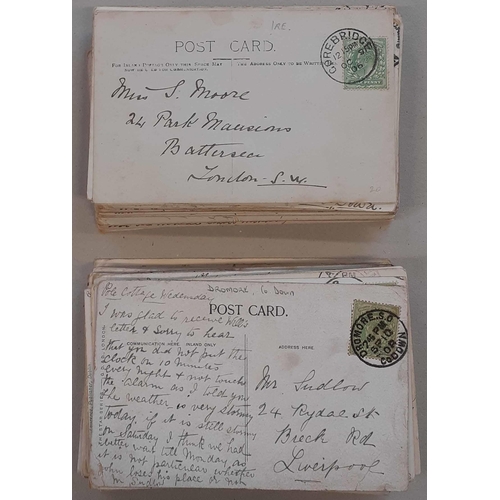 IRE.
POST CARD.
FOR INLAND POSTAGE ONLY THIS SPACE MAY
THE ADDRESS ONLY TO BE WRITTEN
Miss S. Moore
24 Park Mansions
Battersea
London S.W.
GOREBRIDGE
12.15PM
OC
06
20
DROMORE Co Down
Pole Cottage Wednesday
POST CARD.
I was glad to receive Will's
letter & sorry to hear
COMMUNICATION HERE INLAND ONLY
ADDRESS HERE
that you did not put the
clock on 10 minutes
every night & not touch
the alarm as I told you
the weather is very stormy
today if it is still stormy
on Saturday I think we had
better wait till Monday, as
it is not particular whether
John loses his place or not
Mr Sudlow
24 Rydal St
Breck Rd
Liverpool
DROMORE.S.O.
CO.DOWN